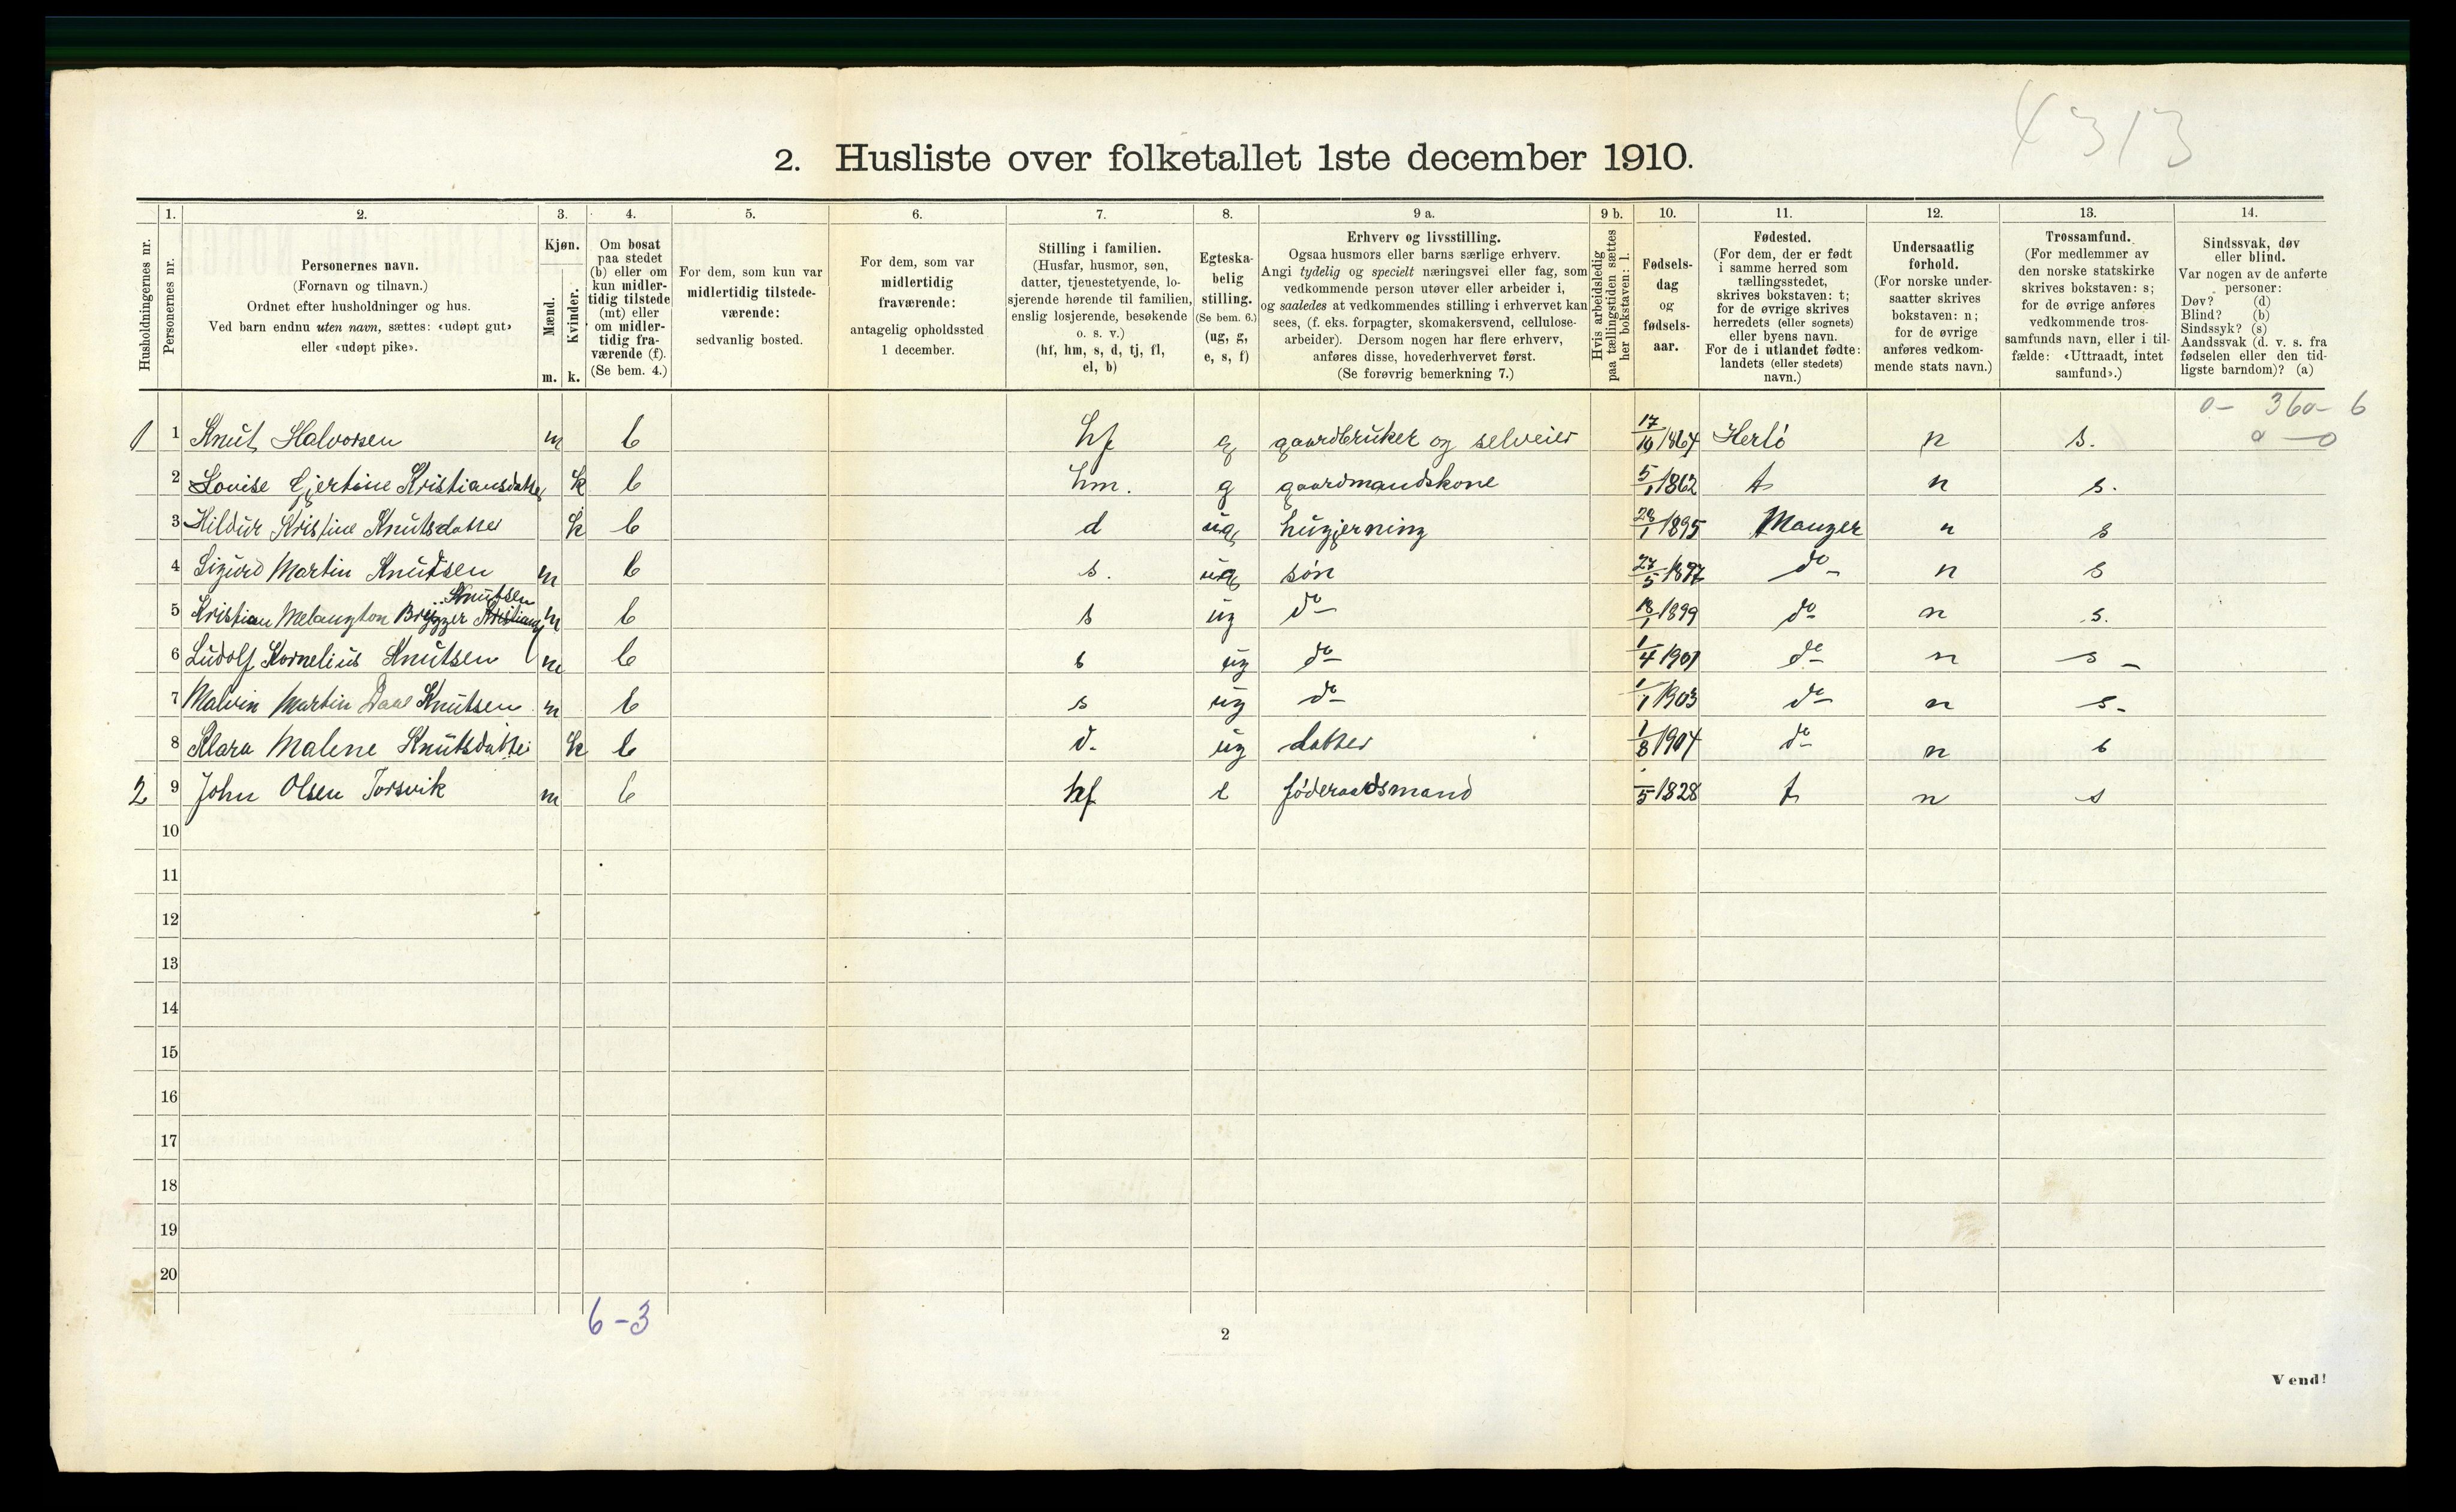 4313
2. Husliste over folketallet 1ste december 1910.
Husholdningernes nr.
1. Personernes nr.
2. Personernes navn.
(Fornavn og tilnavn.)
Ordnet efter husholdninger og hus.
Ved barn endnu uten navn, sættes: «udøpt gut»
eller «udøpt pike».
3. Kjøn.
Mænd. m.
Kvinder. k.
4. Om bosat
paa stedet
(b) eller om
kun midler-
tidig tilstede
(mt) eller
om midler-
tidig fra-
værende (f).
(Se bem. 4.)
5. For dem, som kun var
midlertidig tilstede-
værende:
sedvanlig bosted.
6. For dem, som var
midlertidig
fraværende:
antagelig opholdssted
1 december.
7. Stilling i familien.
(Husfar, husmor, søn,
datter, tjenestetyende, lo-
sjerende hørende til familien,
enslig losjerende, besøkende
o. s. v.)
(hf, hm, s, d, tj, fl,
el, b)
8. Egteska-
belig
stilling.
(Se bem. 6.)
(ug, g,
e, s, f)
9 a. Erhverv og livsstilling.
Ogsaa husmors eller barns særlige erhverv.
Angi tydelig og specielt næringsvei eller fag, som
vedkommende person utøver eller arbeider i,
og saaledes at vedkommendes stilling i erhvervet kan
sees, (f. eks. forpagter, skomakersvend, cellulose-
arbeider). Dersom nogen har flere erhverv,
anføres disse, hovederhvervet først.
(Se forøvrig bemerkning 7.)
9 b. Hvis arbeidsledig
paa tællingstiden sættes
her bokstaven: l.
10. Fødsels-
dag
og
fødsels-
aar.
11. Fødested.
(For dem, der er født
i samme herred som
tællingsstedet,
skrives bokstaven: t;
for de øvrige skrives
herredets (eller sognets)
eller byens navn.
For de i utlandet fødte:
landets (eller stedets)
navn.)
12. Undersaatlig
forhold.
(For norske under-
saatter skrives
bokstaven: n;
for de øvrige
anføres vedkom-
mende stats navn.)
13. Trossamfund.
(For medlemmer av
den norske statskirke
skrives bokstaven: s;
for de øvrige anføres
vedkommende tros-
samfunds navn, eller i til-
fælde: «Uttraadt, intet
samfund».)
14. Sindssvak, døv
eller blind.
Var nogen av de anførte
personer:
Døv? (d)
Blind? (b)
Sindssyk? (s)
Aandssvak (d. v. s. fra
fødselen eller den tid-
ligste barndom)? (a)
0 - 360 - 6
0 — 0
1 1 Knut Halvorsen m b hf g gaardbruker og selveier 17/10 1864 Herlö n s.
2 Lovise Gjertine Kristiansdatter k b hm. g gaardmandskone 5/1 1862 t n s.
3 Hildur Kristine Knutsdatter k b d ug husgjerning 28/1 1895 Manger n s
4 Sigurd Martin Knudsen m b s. ug søn 27/5 1897 do n s
Knutsen
5 Kristian Melangton Brygger m b s ug do 18/1 1899 do n s.
6 Ludolf Kornelius Knutsen m b s ug do 1/4 1901 do n s -
7 Malvin Martin Daae Knutsen m b s ug do 1/1 1903 do n s -
8 Klara Malene Knutsdatter k b d. ug datter 1/8 1904 do n s
2 9 John Olsen Torsvik m b hf e føderaadsmand /5 1828 t n s
10
11
12
13
14
15
16
17
18
19
20
6-3
2
Vend!